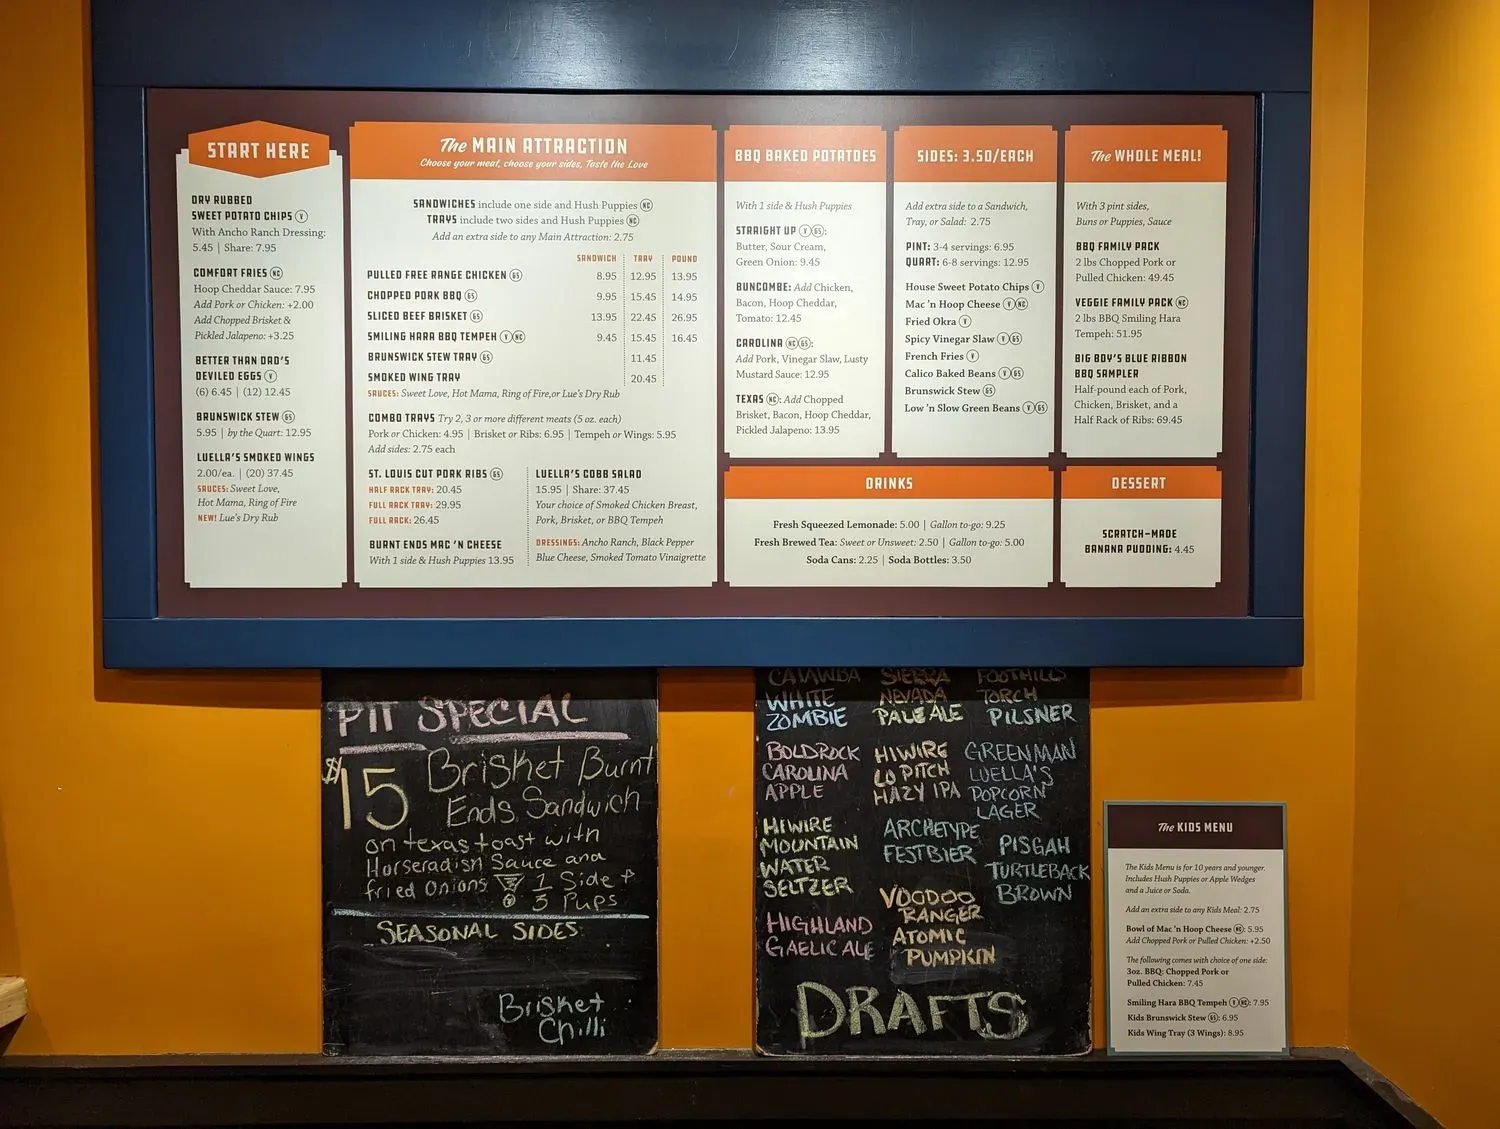 START HERE
DRY RUBBED
SWEET POTATO CHIPS (V)
With Ancho Ranch Dressing:
5.45 | Share: 7.95
COMFORT FRIES (NC)
Hoop Cheddar Sauce: 7.95
Add Pork or Chicken: +2.00
Add Chopped Brisket &
Pickled Jalapeno: +3.25
BETTER THAN DAD'S
DEVILED EGGS (V)
(6) 6.45 | (12) 12.45
BRUNSWICK STEW (GS)
5.95 | by the Quart: 12.95
LUELLA'S SMOKED WINGS
2.00/ea. | (20) 37.45
SAUCES: Sweet Love,
Hot Mama, Ring of Fire
NEW! Lue's Dry Rub
The MAIN ATTRACTION
Choose your meat, choose your sides, Taste the Love
SANDWICHES include one side and Hush Puppies (NC)
TRAYS include two sides and Hush Puppies (NC)
Add an extra side to any Main Attraction: 2.75
SANDWICH TRAY POUND
PULLED FREE RANGE CHICKEN (GS) 8.95 12.95 13.95
CHOPPED PORK BBQ (GS) 9.95 15.45 14.95
SLICED BEEF BRISKET (GS) 13.95 22.45 26.95
SMILING HARA BBQ TEMPEH (V)(NC) 9.45 15.45 16.45
BRUNSWICK STEW TRAY (GS) 11.45
SMOKED WING TRAY 20.45
SAUCES: Sweet Love, Hot Mama, Ring of Fire,or Lue's Dry Rub
COMBO TRAYS Try 2, 3 or more different meats (5 oz. each)
Pork or Chicken: 4.95 | Brisket or Ribs: 6.95 | Tempeh or Wings: 5.95
Add sides: 2.75 each
ST. LOUIS CUT PORK RIBS (GS)
HALF RACK TRAY: 20.45
FULL RACK TRAY: 29.95
FULL RACK: 26.45
BURNT ENDS MAC 'N CHEESE
With 1 side & Hush Puppies 13.95
LUELLA'S COBB SALAD
15.95 | Share: 37.45
Your choice of Smoked Chicken Breast,
Pork, Brisket, or BBQ Tempeh
DRESSINGS: Ancho Ranch, Black Pepper
Blue Cheese, Smoked Tomato Vinaigrette
BBQ BAKED POTATOES
With 1 side & Hush Puppies
STRAIGHT UP (V)(GS):
Butter, Sour Cream,
Green Onion: 9.45
BUNCOMBE: Add Chicken,
Bacon, Hoop Cheddar,
Tomato: 12.45
CAROLINA (NC)(GS):
Add Pork, Vinegar Slaw, Lusty
Mustard Sauce: 12.95
TEXAS (NC): Add Chopped
Brisket, Bacon, Hoop Cheddar,
Pickled Jalapeno: 13.95
SIDES: 3.50/EACH
Add extra side to a Sandwich,
Tray, or Salad: 2.75
PINT: 3-4 servings: 6.95
QUART: 6-8 servings: 12.95
House Sweet Potato Chips (V)
Mac 'n Hoop Cheese (V)(NC)
Fried Okra (V)
Spicy Vinegar Slaw (V)(GS)
French Fries (V)
Calico Baked Beans (V)(GS)
Brunswick Stew (GS)
Low 'n Slow Green Beans (V)(GS)
The WHOLE MEAL!
With 3 pint sides,
Buns or Puppies, Sauce
BBQ FAMILY PACK
2 lbs Chopped Pork or
Pulled Chicken: 49.45
VEGGIE FAMILY PACK (NC)
2 lbs BBQ Smiling Hara
Tempeh: 51.95
BIG BOY'S BLUE RIBBON
BBQ SAMPLER
Half-pound each of Pork,
Chicken, Brisket, and a
Half Rack of Ribs: 69.45
DRINKS
Fresh Squeezed Lemonade: 5.00 | Gallon to-go: 9.25
Fresh Brewed Tea: Sweet or Unsweet: 2.50 | Gallon to-go: 5.00
Soda Cans: 2.25 | Soda Bottles: 3.50
DESSERT
SCRATCH-MADE
BANANA PUDDING: 4.45
PIT SPECIAL
$15 Brisket Burnt
Ends Sandwich
on texas toast with
Horseradish Sauce and
fried Onions 1 Side +
3 Pups
SEASONAL SIDES
Brisket
Chilli
CATAWBA
WHITE
ZOMBIE
BOLDROCK
CAROLINA
APPLE
HIWIRE
MOUNTAIN
WATER
SELTZER
HIGHLAND
GAELIC ALE
SIERRA
NEVADA
PALE ALE
HIWIRE
LO PITCH
HAZY IPA
ARCHETYPE
FESTBIER
VOODOO
RANGER
ATOMIC
PUMPKIN
FOOTHILLS
TORCH
PILSNER
GREENMAN
LUELLA'S
POPCORN
LAGER
PISGAH
TURTLEBACK
BROWN
DRAFTS
The KIDS MENU
The Kids Menu is for 10 years and younger.
Includes Hush Puppies or Apple Wedges
and a Juice or Soda.
Add an extra side to any Kids Meal: 2.75
Bowl of Mac 'n Hoop Cheese (NC): 5.95
Add Chopped Pork or Pulled Chicken: +2.50
The following comes with choice of one side:
3oz. BBQ: Chopped Pork or
Pulled Chicken: 7.45
Smiling Hara BBQ Tempeh (V)(NC): 7.95
Kids Brunswick Stew (GS): 6.95
Kids Wing Tray (3 Wings): 8.95